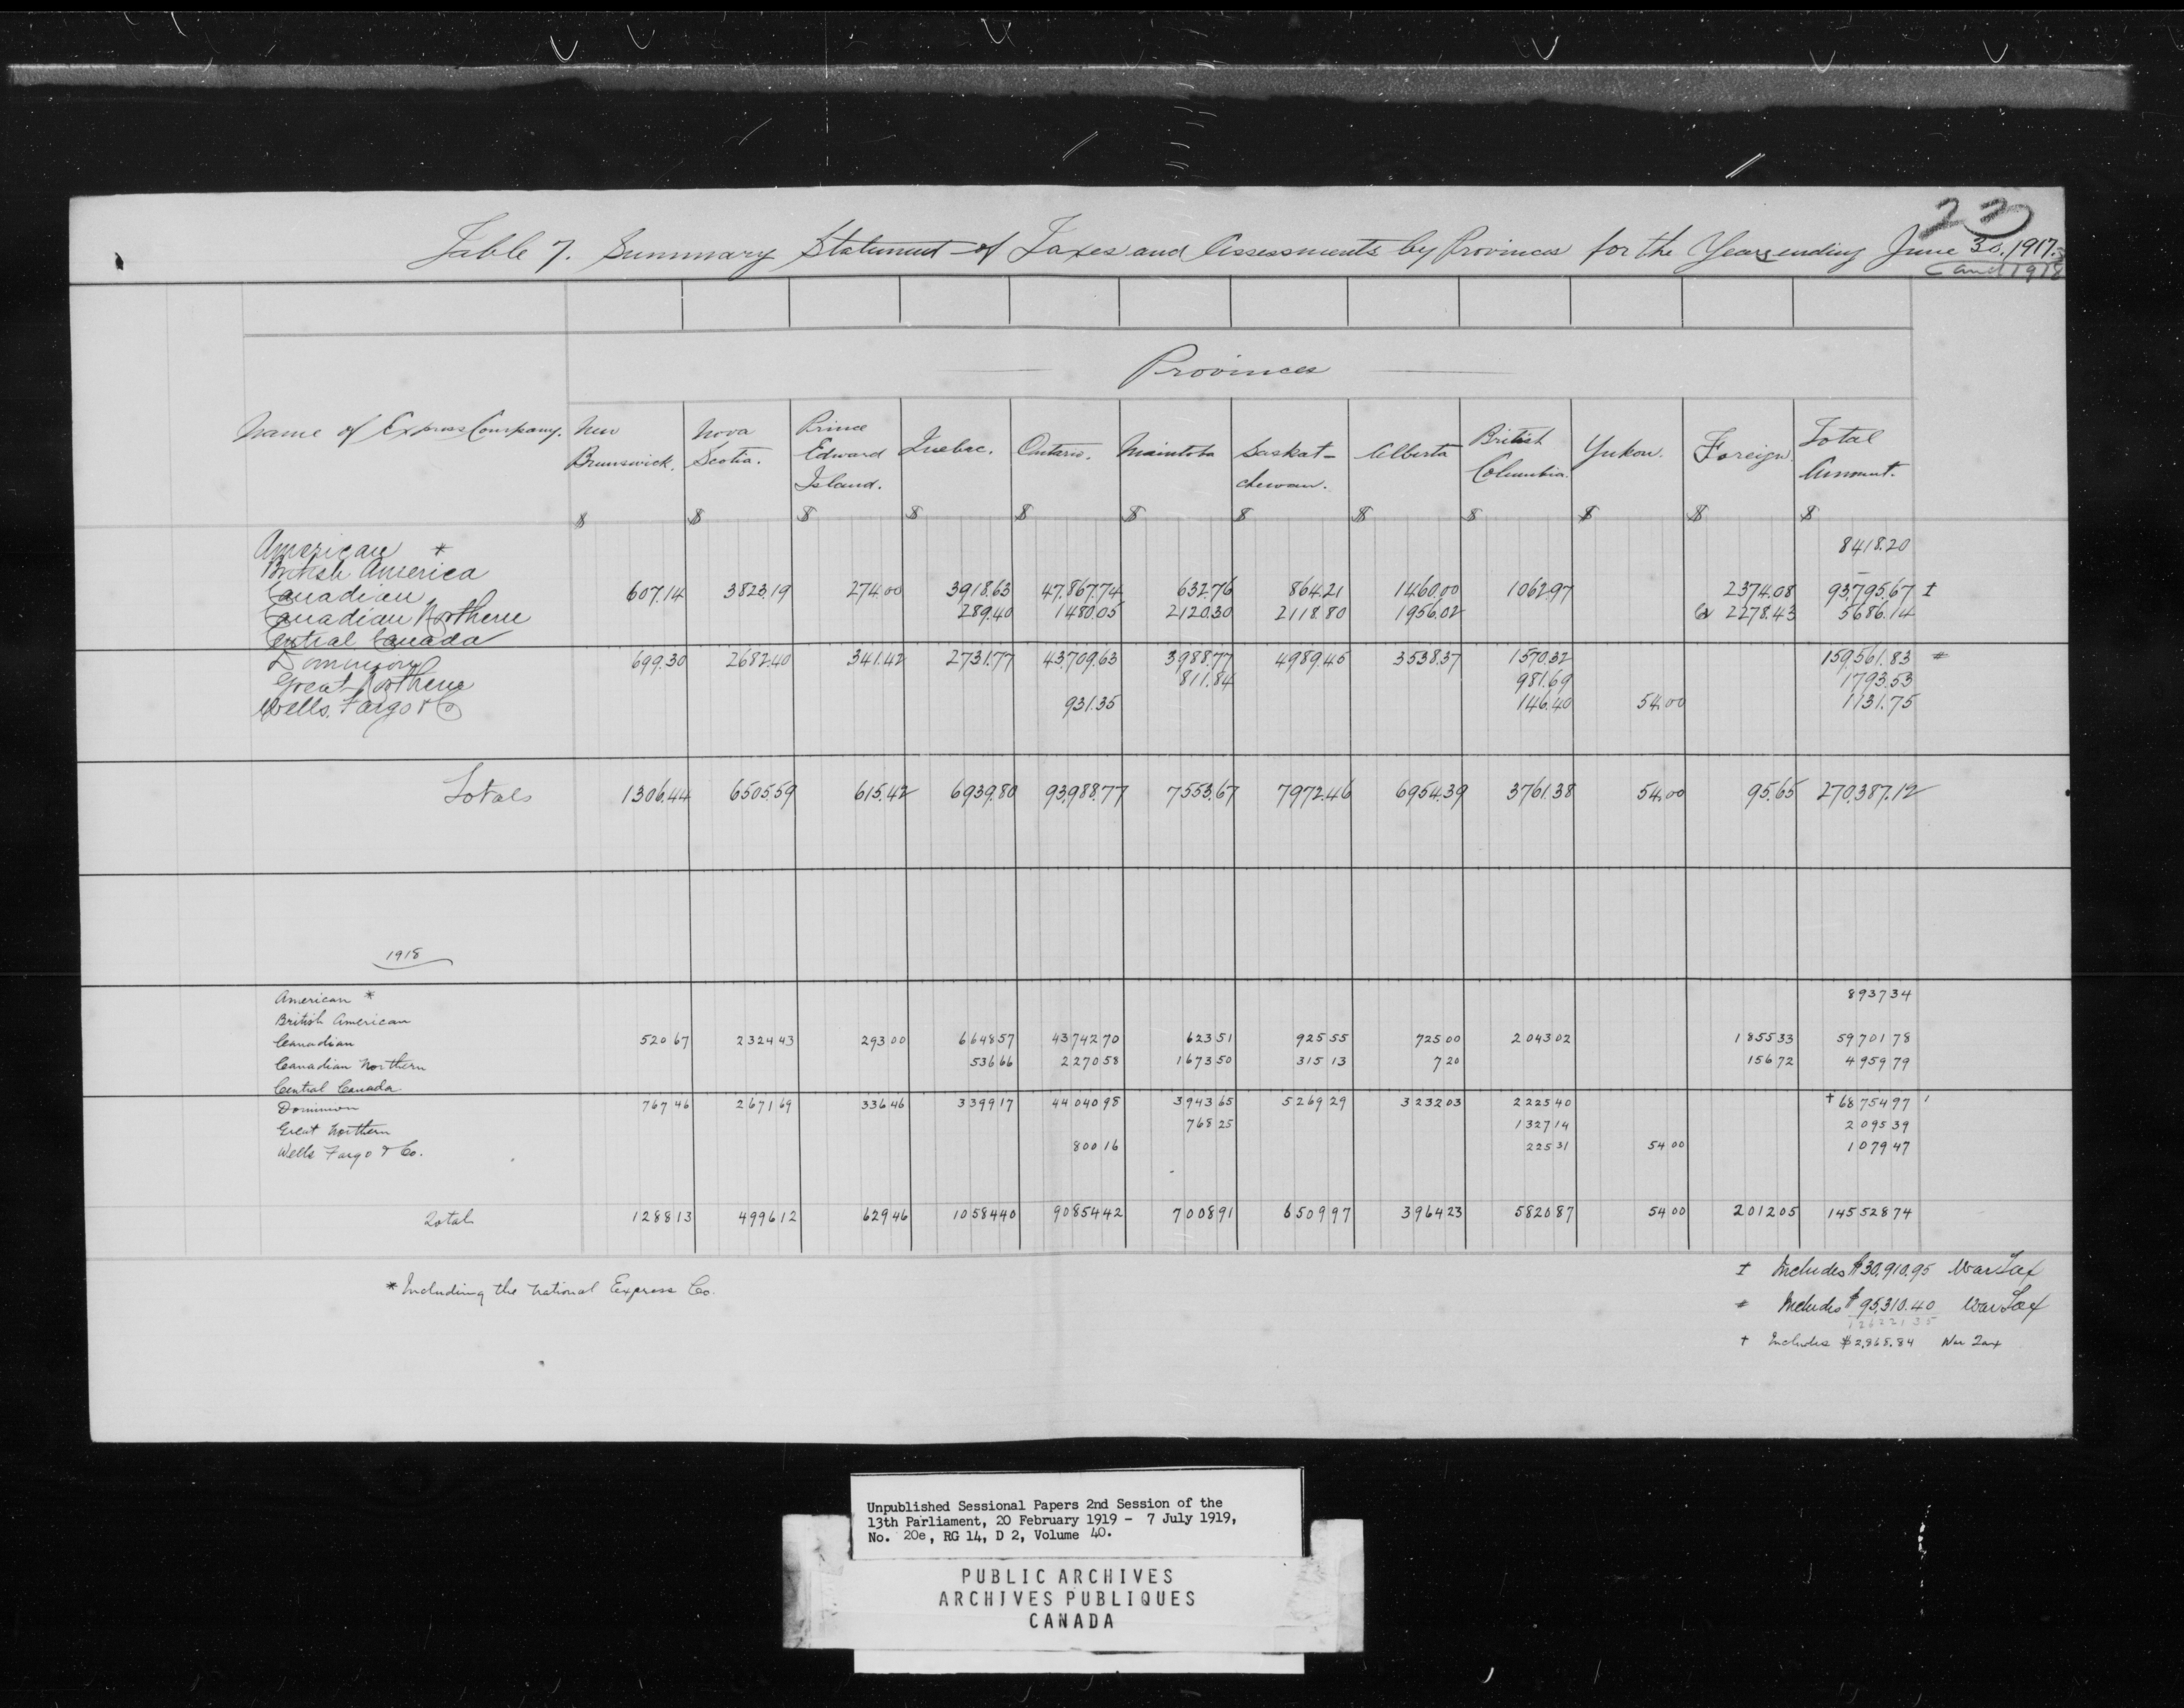 22
Table 7. Summary Statement of Taxes and Assessments by Provinces for the Years ending June 30, 1917.
and 1918
Provinces
Name of Express Company. New Brunswick. Nova Scotia. Prince Edward Island. Quebec. Ontario. Manitoba Saskat-chewan. Alberta British Columbia. Yukon. Foreign. Total Amount.
$ $ $ $ $ $ $ $ $ $ $ $
American * 8418.20
British America
Canadian 607.14 3823.19 274.00 3918.63 47.867.74 632.76 864.21 1460.00 1062.97 2374.08 93,795.67 ‡
Canadian Northern 289.40 1480.05 2120.30 2118.80 1956.02 2278.43 5686.14
Central Canada
Dominion 699.30 2682.40 341.42 2731.77 43,709.63 3988.77 4989.45 3538.37 1570.32 159,561.83 #
Great Northern 811.84 981.69 1793.53
Wells, Fargo & Co 931.35 146.40 54.00 1131.75
Totals 1306.44 6505.59 615.42 6939.80 93,988.77 7553.67 7972.46 6954.39 3761.38 54.00 95.65 270,387.12
1918
American * 8937 34
British American
Canadian 520 67 2324 43 293 00 6648 57 43742 70 623 51 925 55 725 00 2043 02 1855 33 59701 78
Canadian Northern 536 66 2270 58 1673 50 315 13 7 20 156 72 4959 79
Central Canada
Dominion 767 46 2671 69 336 46 3399 17 44040 98 3943 65 5269 29 3232 03 2225 40 † 68754 97
Great Northern 768 25 1327 14 2095 39
Wells Fargo & Co. 800 16 225 31 54 00 1079 47
Total 1288 13 4996 12 629 46 10584 40 90854 42 7008 91 6509 97 3964 23 5820 87 54 00 2012 05 145528 74
* Including the National Express Co.
‡ Includes $30,910.95 War Tax
# Includes $95,310.40 War Tax
126221 35
† Includes $2,868.84 War Tax
Unpublished Sessional Papers 2nd Session of the
13th Parliament, 20 February 1919 - 7 July 1919,
No. 20e, RG 14, D 2, Volume 40.
PUBLIC ARCHIVES
ARCHIVES PUBLIQUES
CANADA